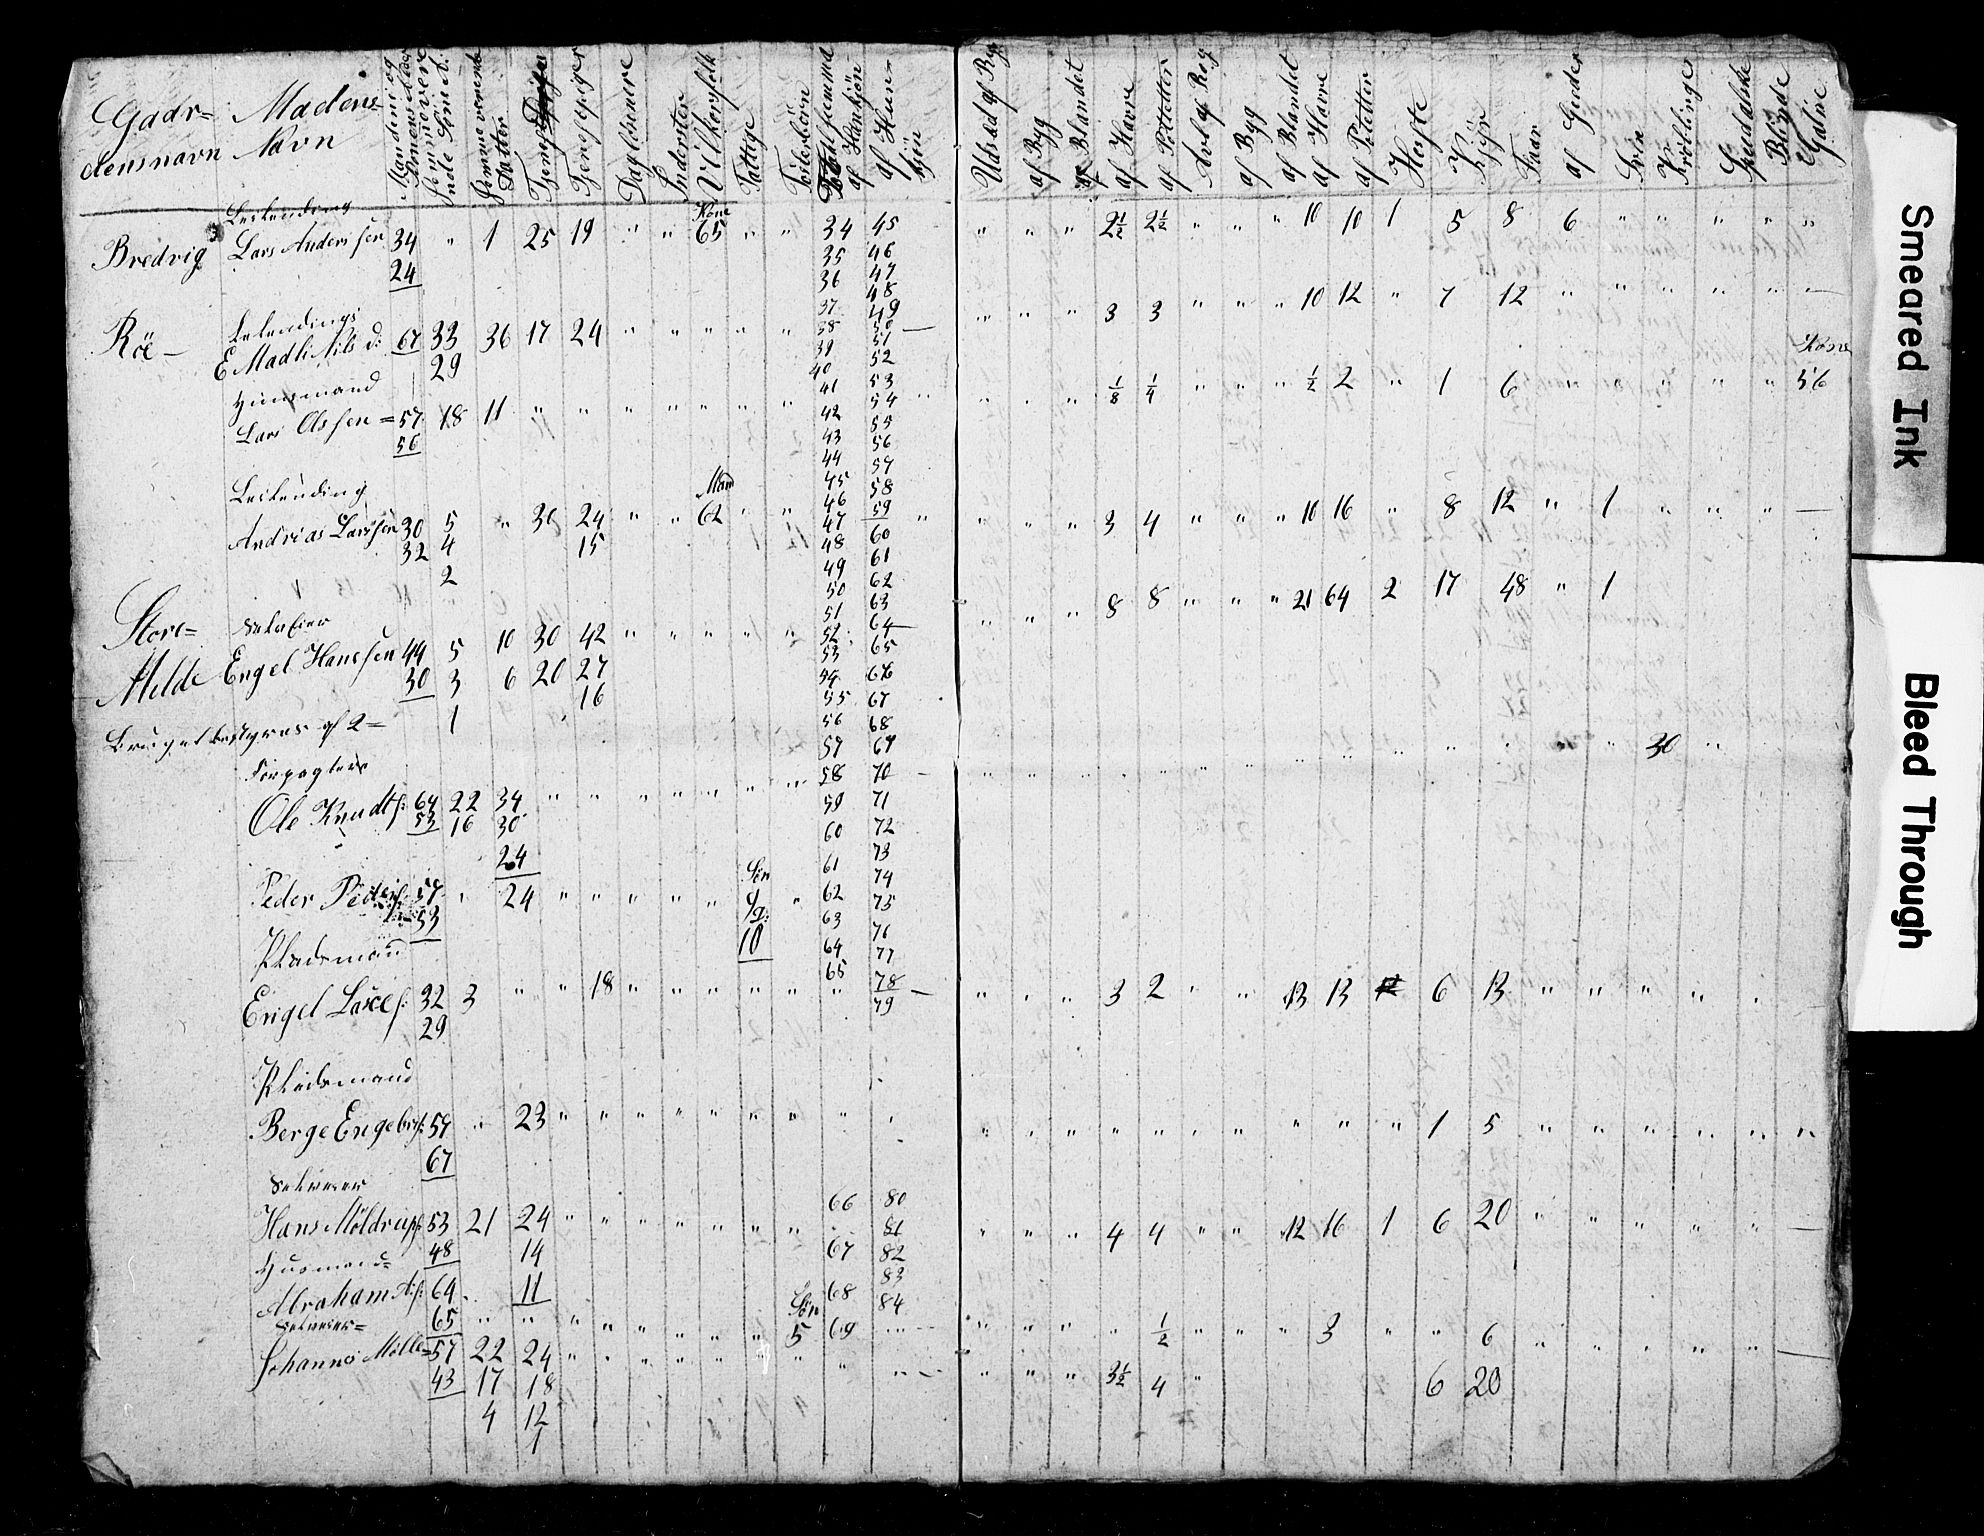 Gaar= Madens
densnavn Navn
Dagleiere
Inderster
Vilkorsfolk
Fattige
af Hankjön
Udsæd af Rug
af Byg
af Blandet
af Havre
af Potetter
Avl af Rug
af Byg
af Blandet
af Havre
af Potetter
Heste
Kjör
Faar
af Geeder
Svin
Krøblinge
Spedalske
Blinde
Galne
Leilending Kone
Bredvig Lars Andersen 34 " 1 25 19 " " 65 " " 34 45 " " " 2½ 2½ " " " 10 10 1 5 8 6 " " " " "
24 35 46
36 47
48
Leilendings 37 49
Röe — E Madli Nils d: 67 33 36 17 24 " " " " " 38 50 — " " " 3 3 " " " 10 12 " 7 12 " " " " " —
29 39 51
40 52
Huusmand 41 53 Kone
Lars Olssen = 57 18 11 " " " " " " " 42 54 " " " ⅛ ¼ " " " ½ 2 " 1 6 " " " " " 56
56 43 55
44 56
57
Leilending Mand 45 58
Andrias Larssen 30 5 " 30 24 " " 62 " " 46 59 " " " 3 4 " " " 10 16 " 8 12 " 1 " " " —
32 4 15 47 60
2 48 61
49 62
50 63
Store= Selveier 51 64 —
Melde Engel Hanssen 44 5 10 30 42 " " " " " 52 65 " " " 8 8 " " " 21 64 2 17 48 " 1
30 3 6 20 27 53 66
1 16 54 67
Bruget bestyres af 2= 55 68
56 69
Forpagtere 57 70 —
Ole Knudts: 64 22 34 " " " " " " " 58 71 " " " " " " " " " " " " " " " 30 "
53 16 30 59 72
24 60 73
Søn 61 74
Peder Peders: 57 " 24 " " " " " 9/2: " 62 75
53 10 63 76
Pladsmand 64 77
65 78
Engel Larss: 32 3 " " 18 " " " " " " 79 — " " " 3 2 " " 13 13 6 13 " " " " "
29
Pladsmand
Berge Engebrs: 57 " 23 " " " " " " " " " " " " " " " " " " " " 1 5 " " " " " " "
67
Selveier 66 80
Hans Möldrups: 53 21 24 " " " " " " " 81 " " " 4 4 " " 12 16 1 6 20 " " " " " —
48 14 67 82
Huusmand 11 83
Abraham A.s: 64 Søn 68 84
65 " " " " " " " " 5 69 " " " " " ½ " " " 3 " " 6 " " " " " —
Selveier=
Johannes Mølle= 57 22 24 " " " " " " " " " " " " 3½ 4 " 6 20
43 17 18
4 12
1
Smeared Ink
Bleed Through